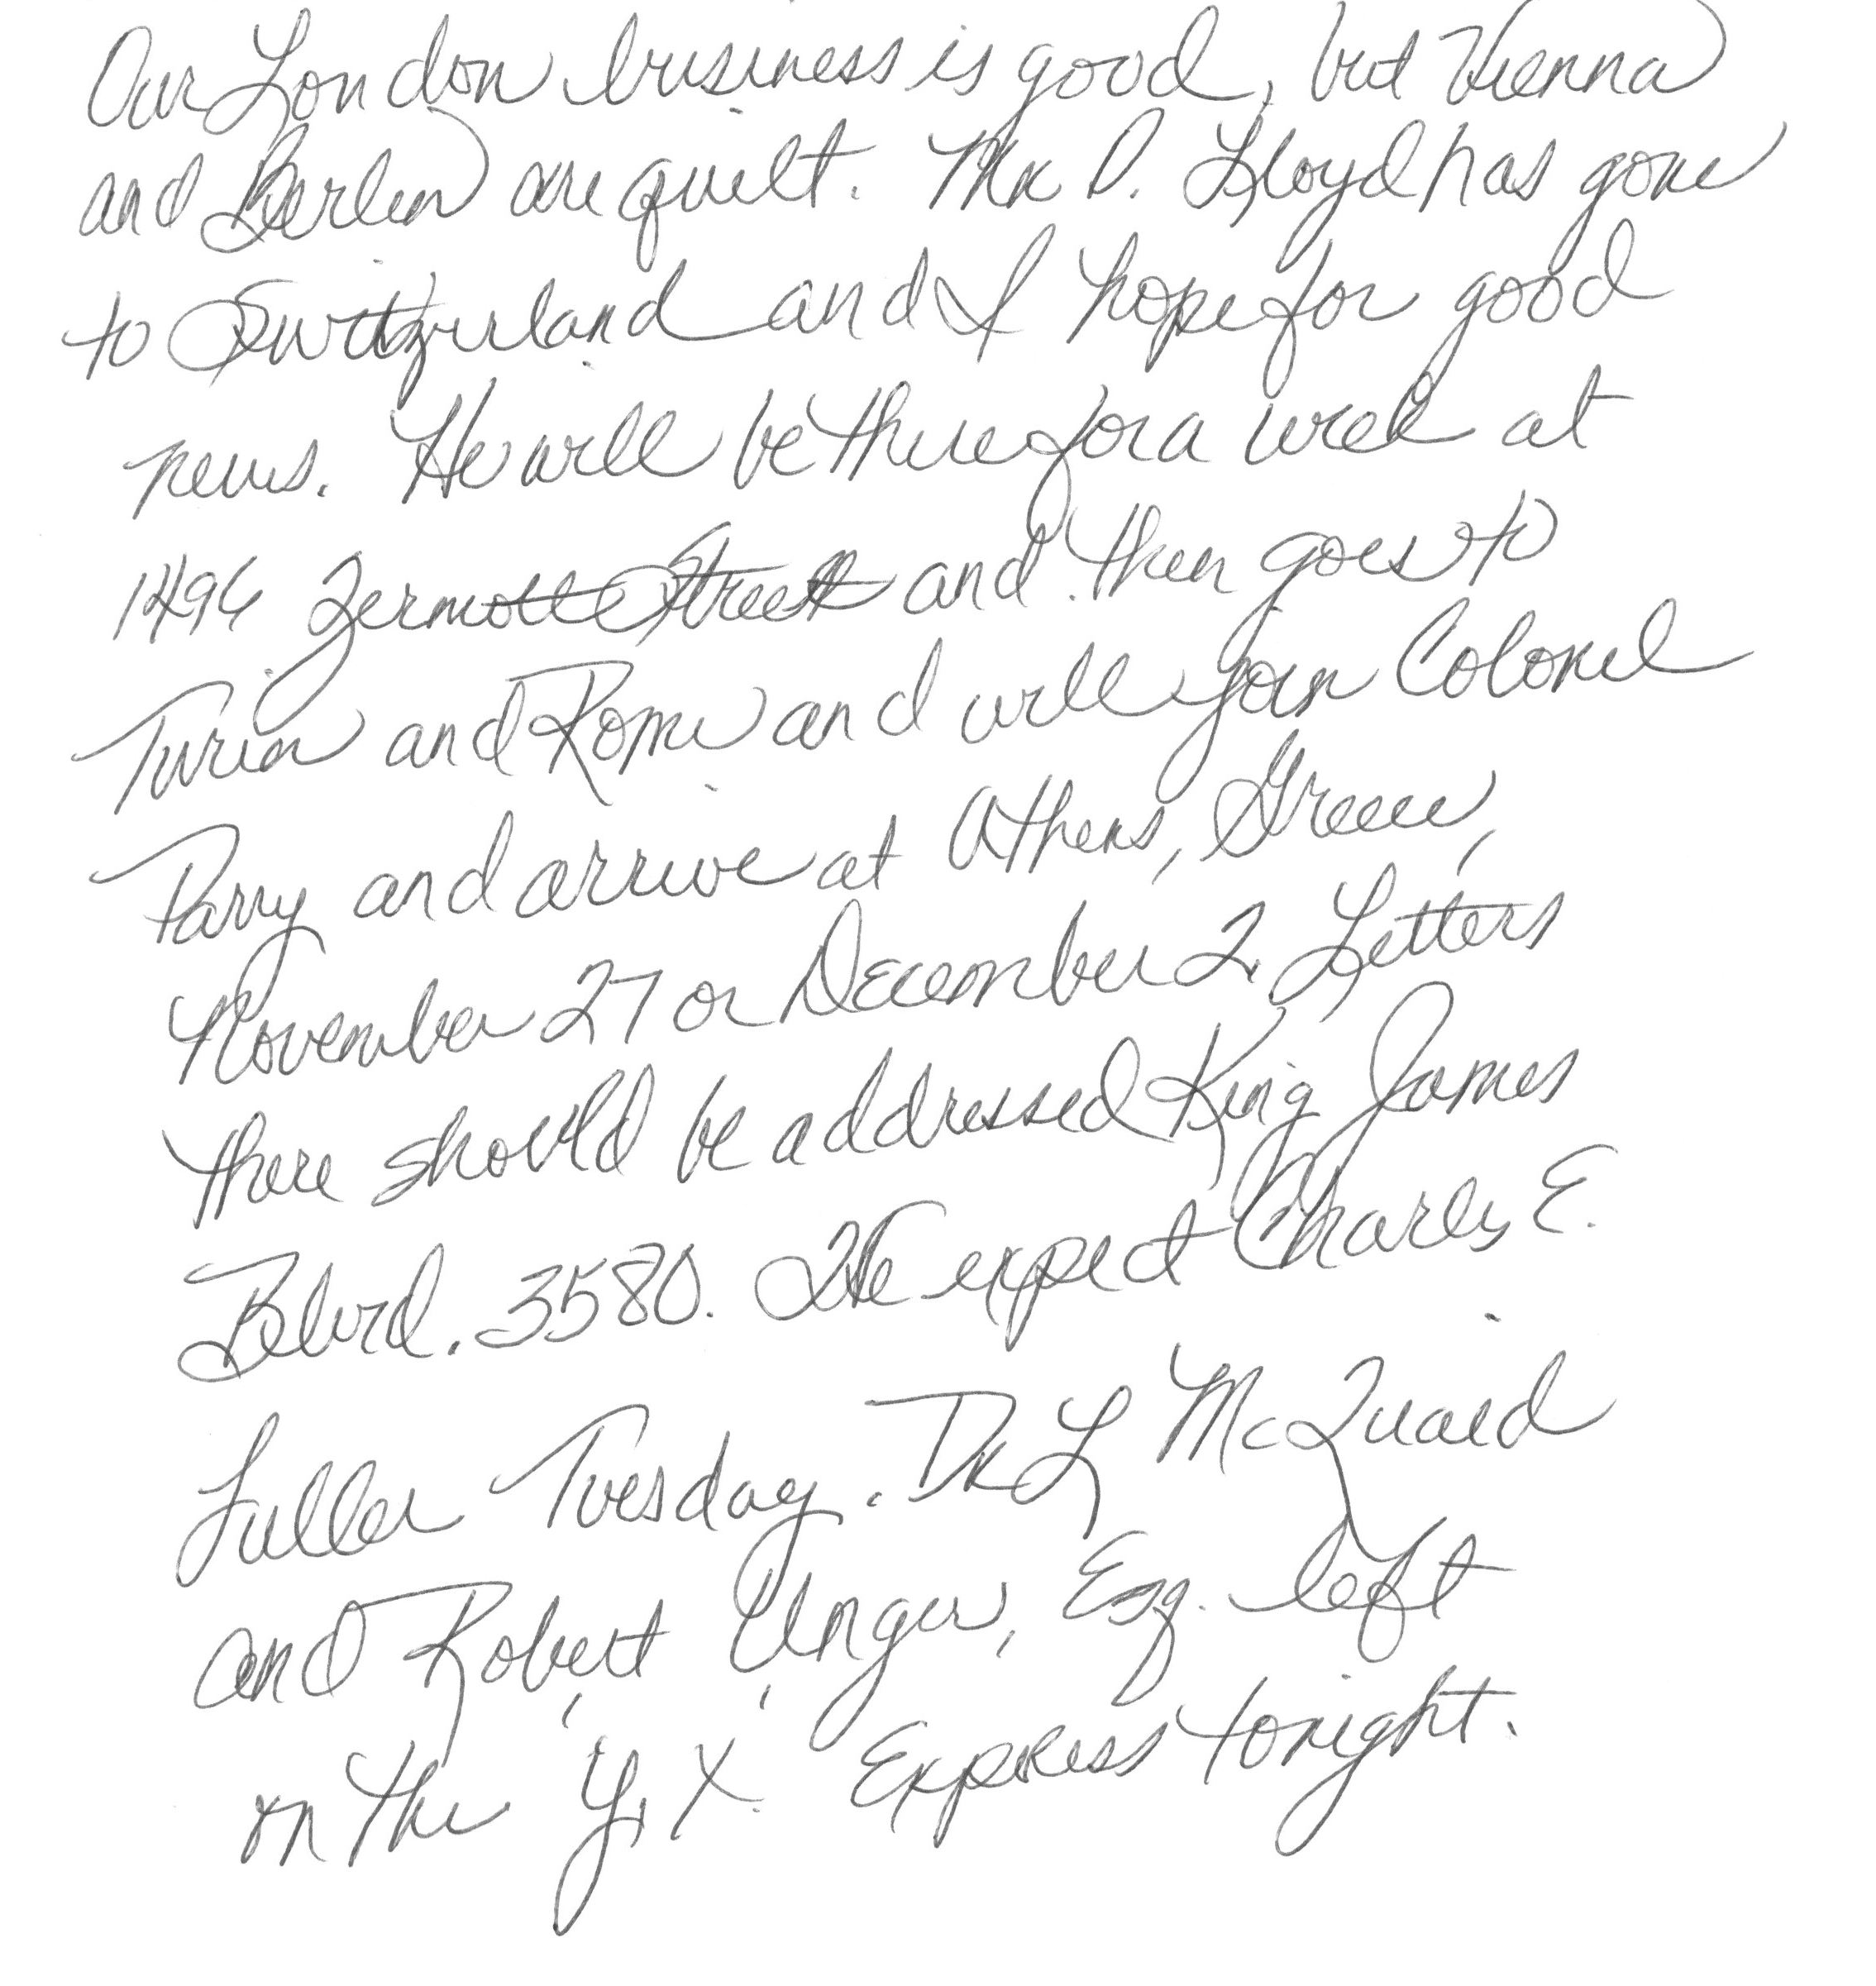 Our London business is good, but Vienna
and Berlin are quiet. Mr. D. Lloyd has gone
to Switzerland and I hope for good
news. He will be there for a week at
1496 Zermott Street and then goes to
Turin and Rome and will join Colonel
Parry and arrive at Athens, Greece,
November 27 or December 2. Letters
there should be addressed King James
Blvd. 3580. We expect Charles E.
Fuller Tuesday. Dr. L McQuaid
and Robert Unger, Esq. left
on the Y. X. Express tonight.